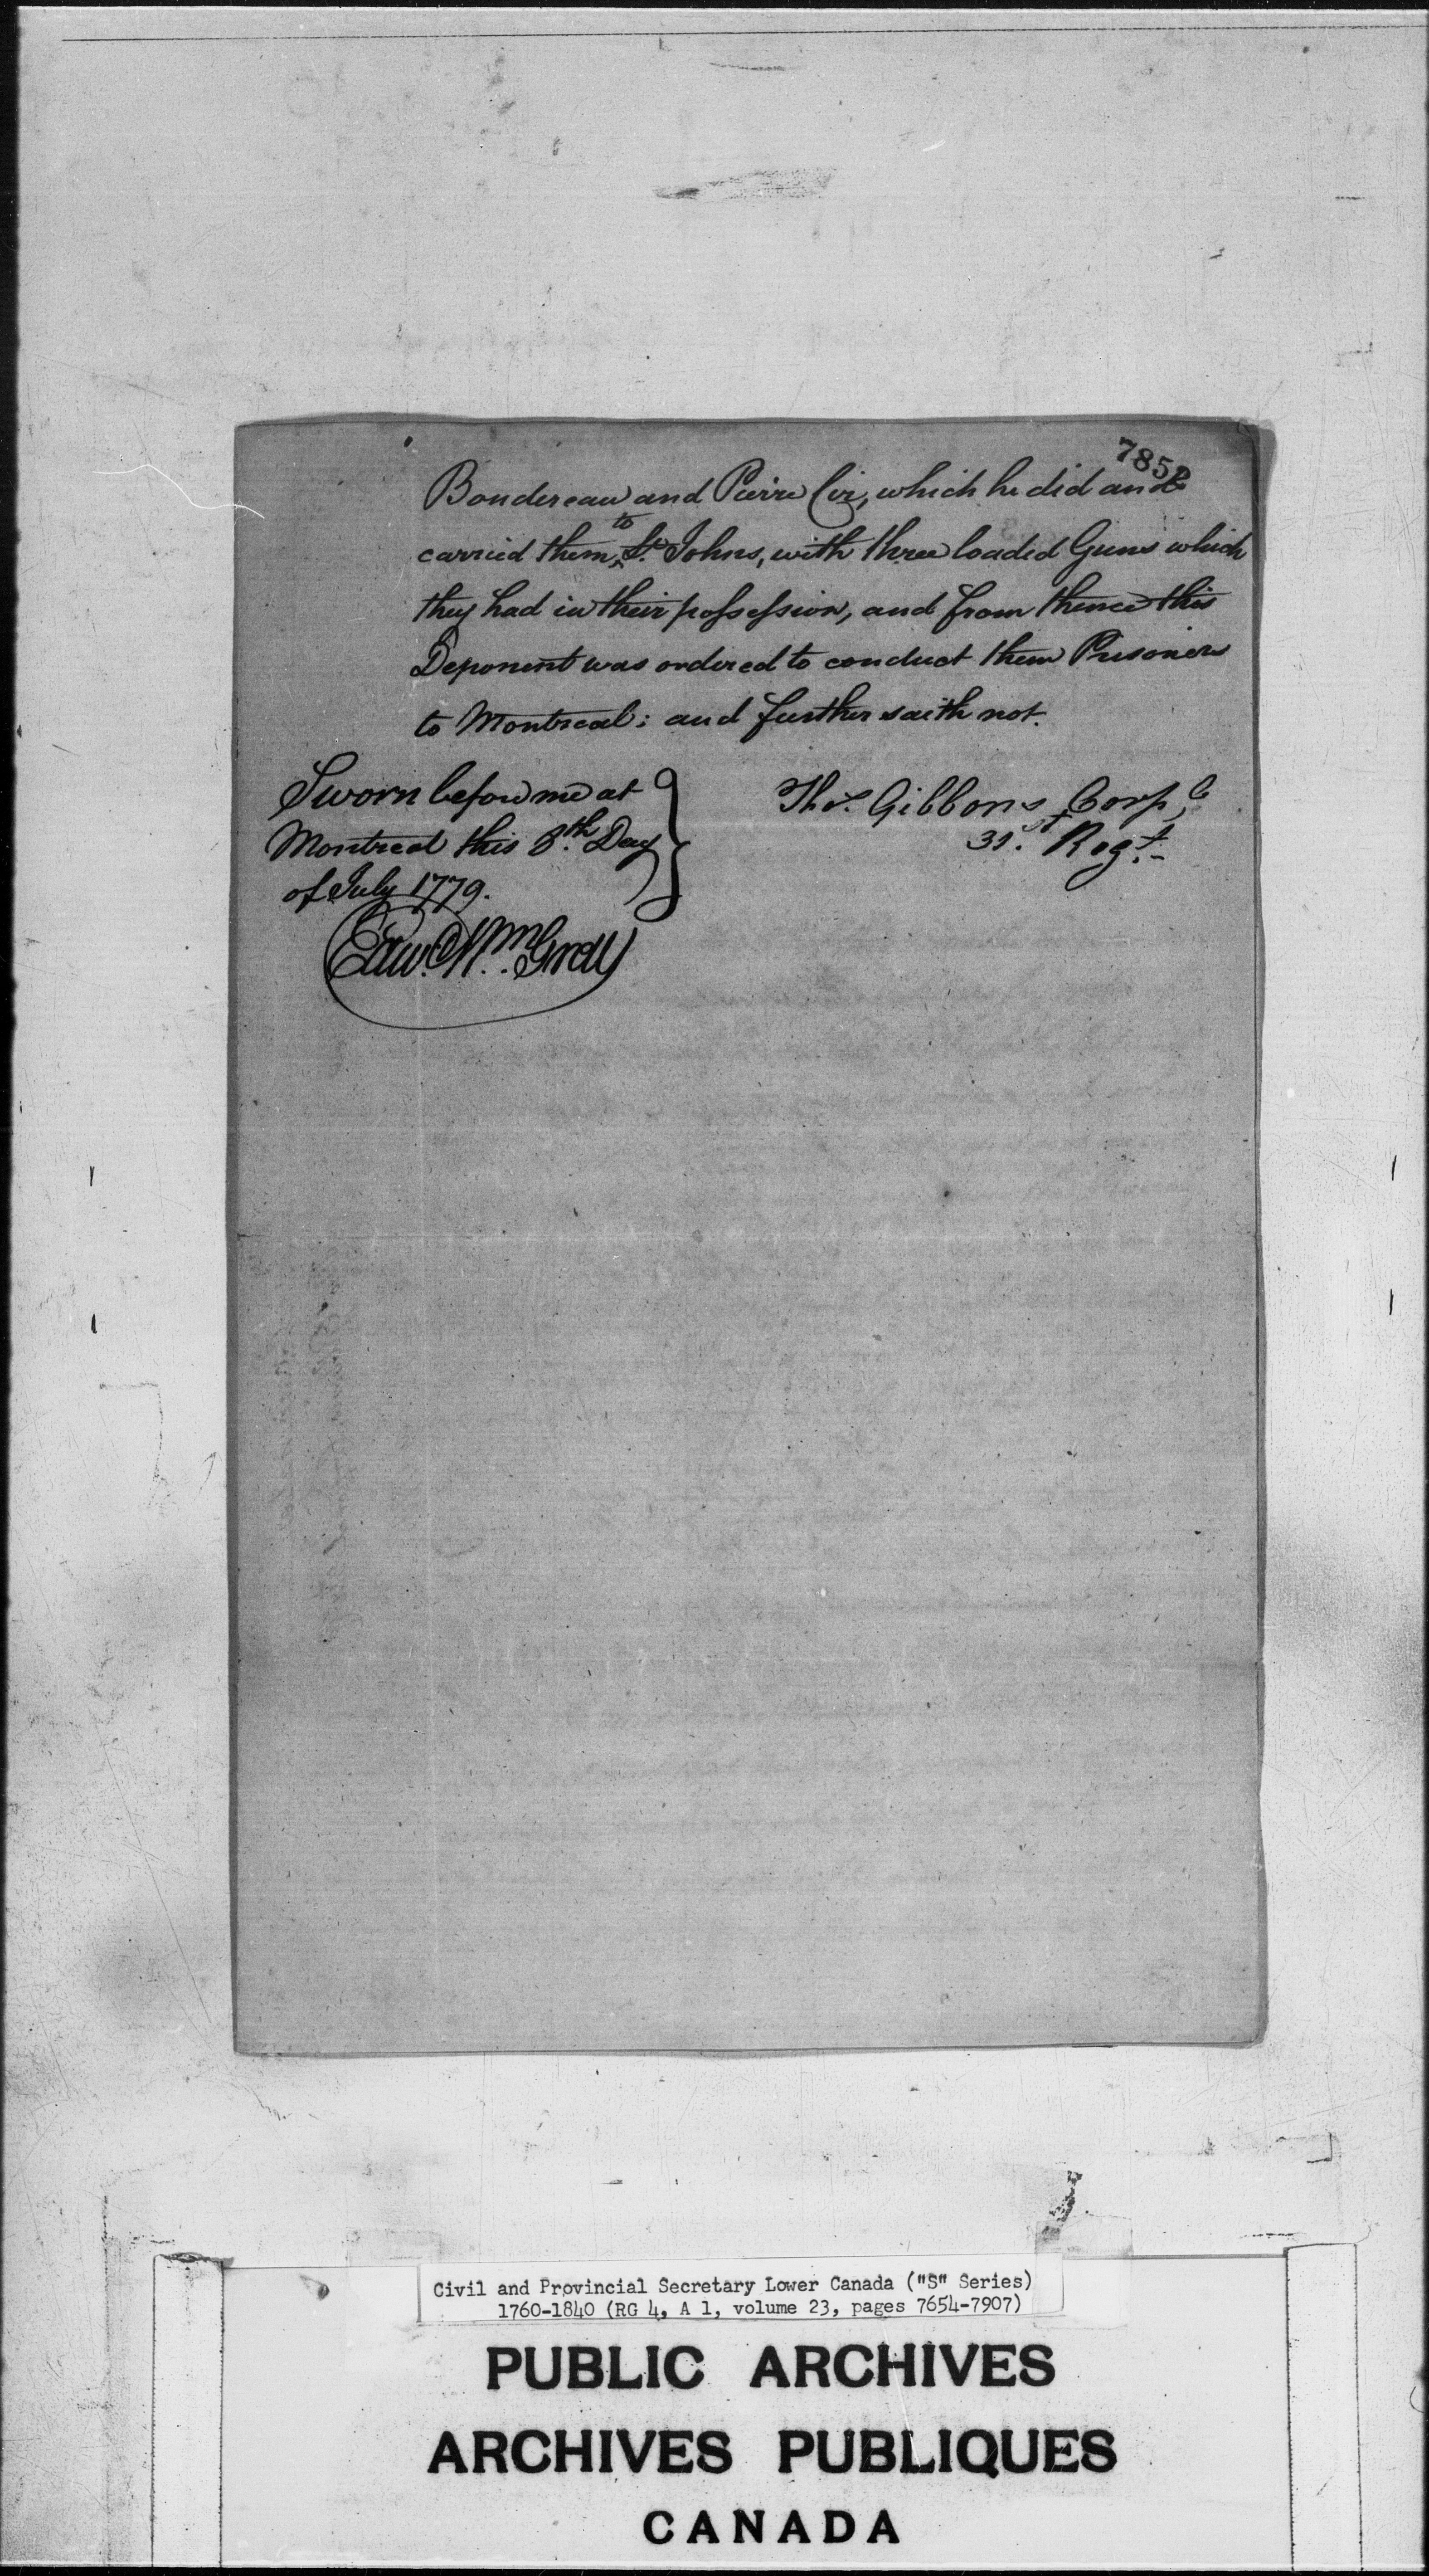 7852
Bondereau and Pierre Cir, which he did and
carried them to St. Johns, with three loaded Guns which
they had in their possession, and from thence this
Deponent was ordered to conduct them Prisoners
to Montreal: and further saith not.
Sworn before me at
Montreal this 8th. Day
of July 1779.
Thos. Gibbons Corpl.
31st. Regt.
Edwd. Wm. Gray
Civil and Provincial Secretary Lower Canada ("S" Series)
1760-1840 (RG 4, A 1, volume 23, pages 7654-7907)
PUBLIC ARCHIVES
ARCHIVES PUBLIQUES
CANADA